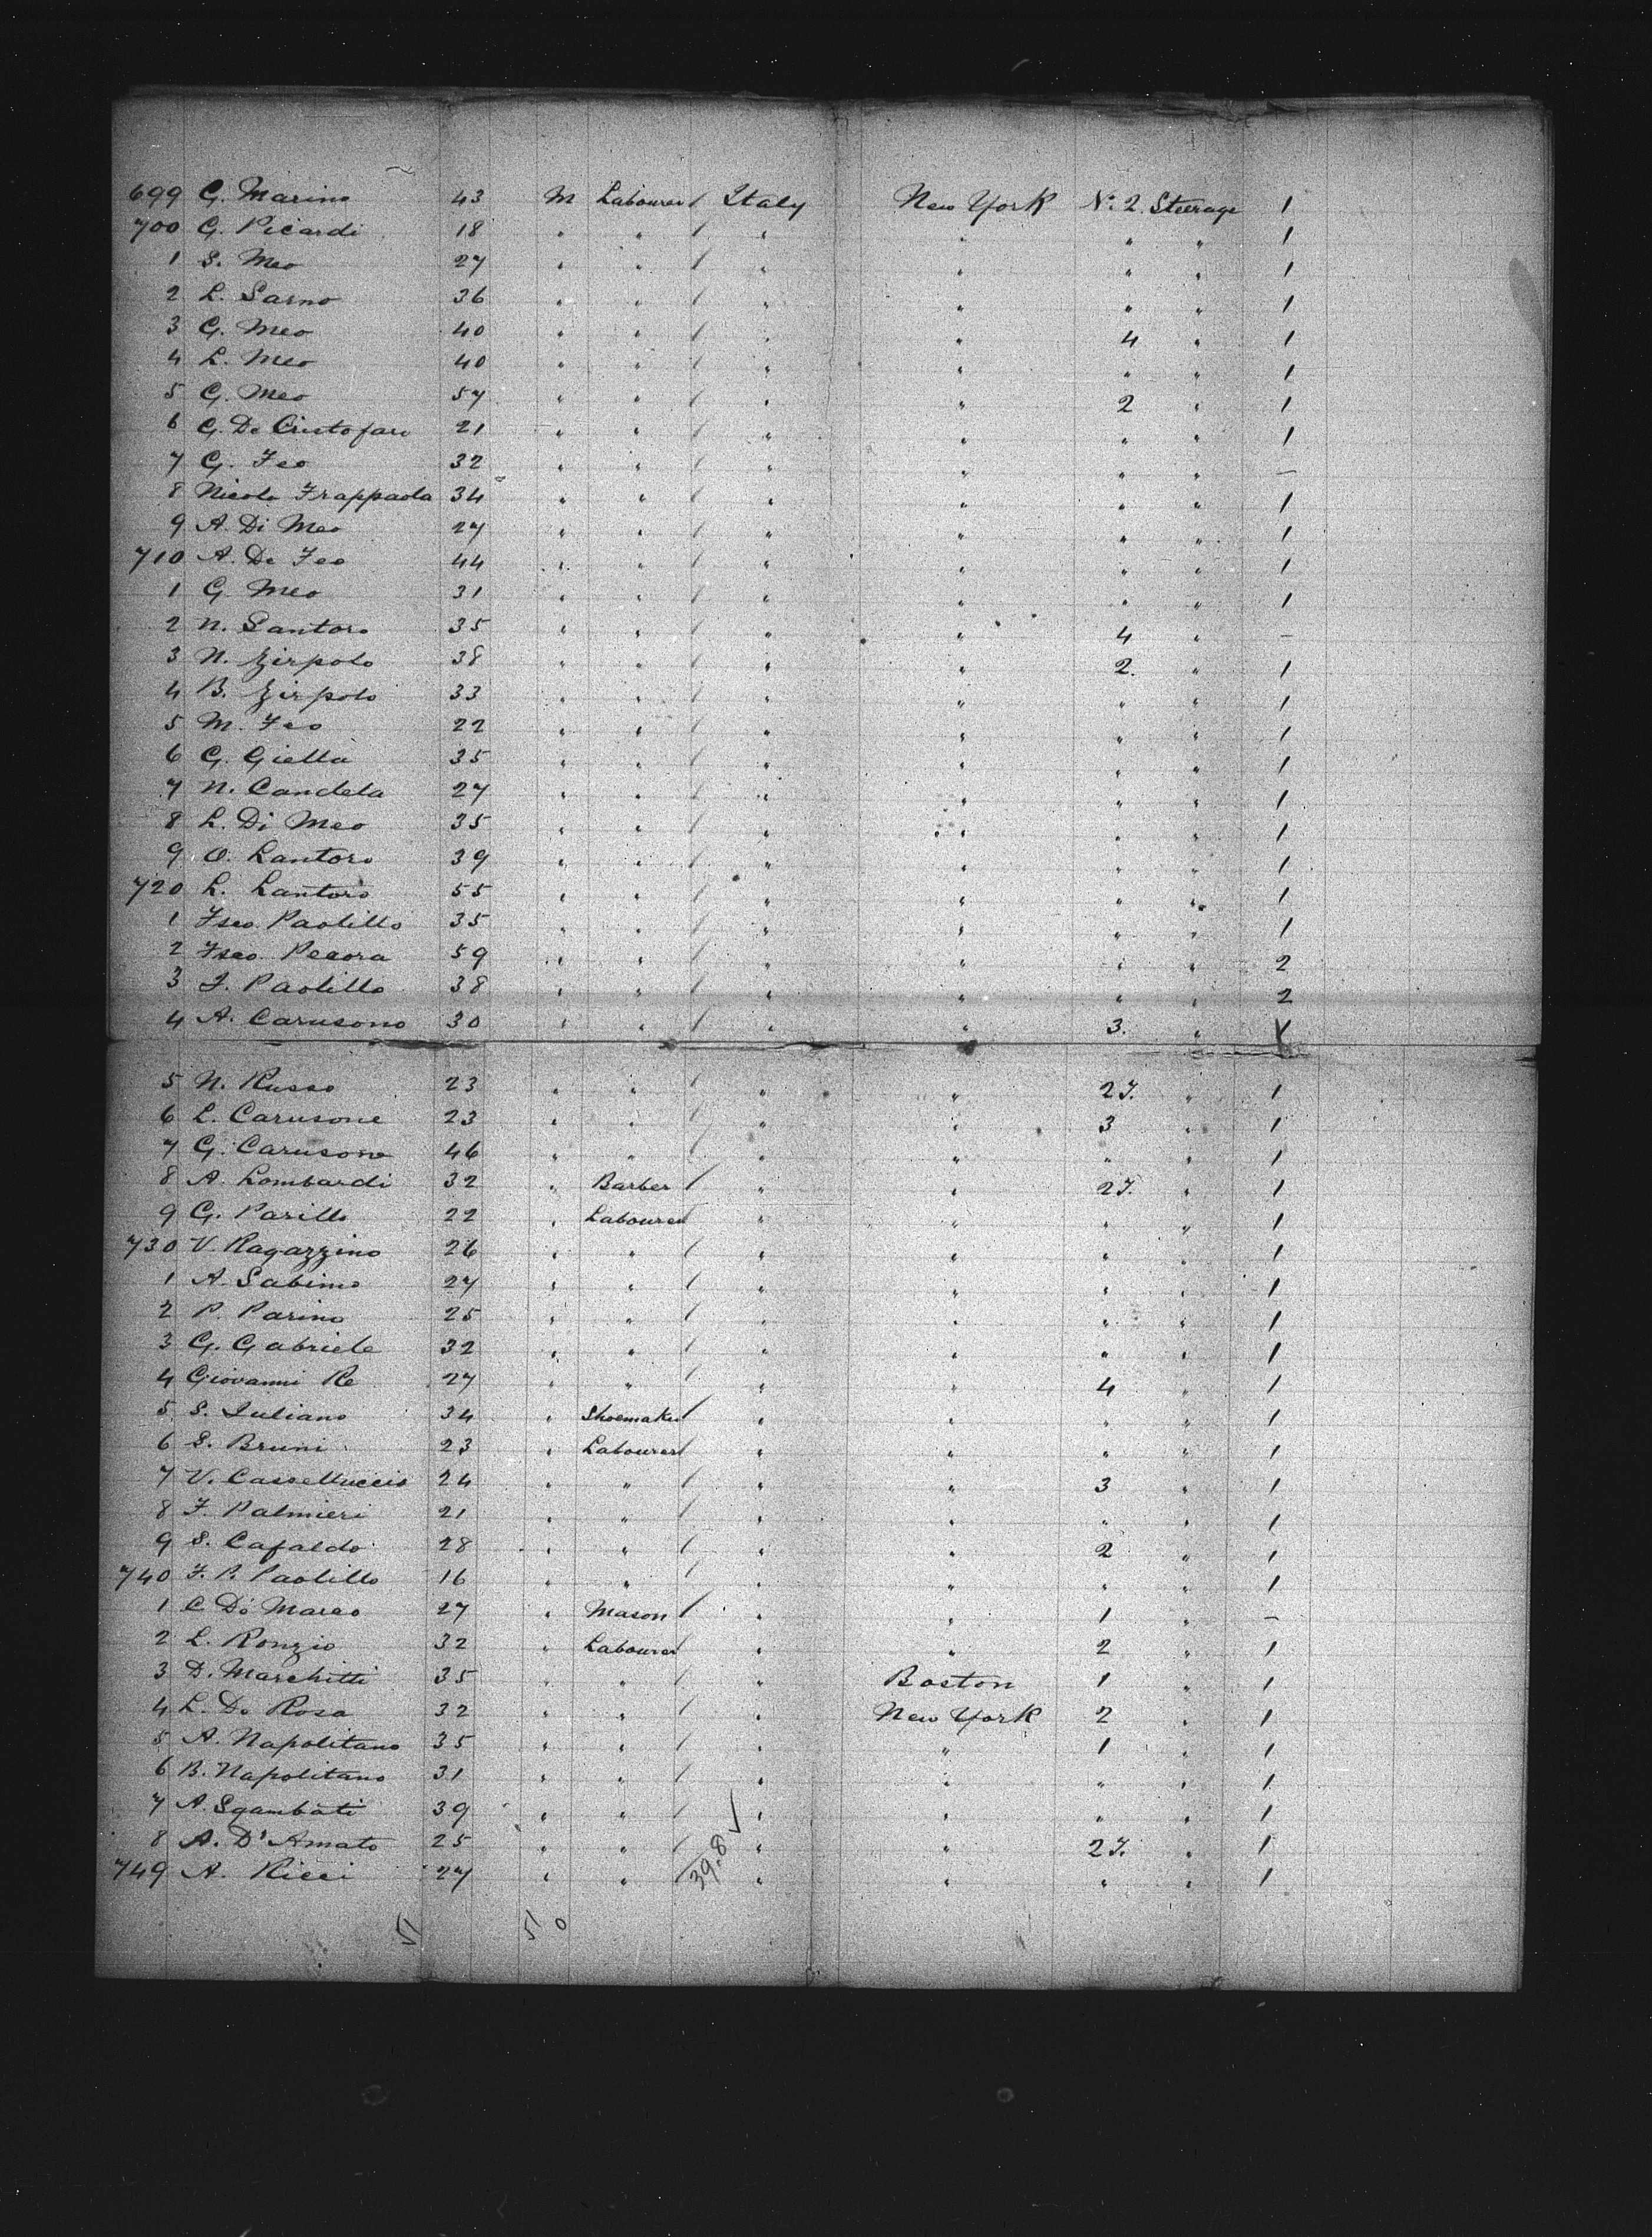 699 G. Marino 43 M Labourer / Italy New York No. 2. Steerage 1
700 G. Picardi 18 " " / " " " " 1
1 S. Meo 27 " " / " " " " 1
2 L. Sarno 36 " " / " " " " 1
3 G. Meo 40 " " / " " 4 " 1
4 L. Meo 40 " " / " " " " 1
5 G. Meo 57 " " / " " 2 " 1
6 G. De Cristofaro 21 " " / " " " " 1
7 G. Feo 32 " " / " " " " —
8 Nicola Frappaola 34 " " / " " " " 1
9 A. Di Meo 27 " " / " " " " 1
710 A. De Feo 44 " " / " " " " 1
1 G. Meo 31 " " / " " " " 1
2 N. Santoro 35 " " / " " 4 " —
3 N. Zirpolo 38 " " / " " 2. " 1
4 B. Zirpolo 33 " " / " " " " 1
5 M. Feo 22 " " / " " " " 1
6 G. Giella 35 " " / " " " " 1
7 N. Candela 27 " " / " " " " 1
8 L. Di Meo 35 " " / " " " " 1
9 O. Lantoro 39 " " / " " " " 1
720 L. Lantoro 55 " " / " " " " 1
1 Fsco. Paolillo 35 " " / " " " " 1
2 Fsco. Pecora 59 " " / " " " " 2
3 I. Paolillo 38 " " / " " " " 2
4 A. Carusono 30 " " / " " 3. "
5 N. Russo 23 " " / " " 2F. " 1
6 L. Carusone 23 " " / " " 3 " 1
7 G. Carusone 46 " " / " " " " 1
8 A. Lombardi 32 " Barber / " " 2F. " 1
9 G. Parillo 22 " Labourer " " " " 1
730 V. Ragazzino 26 " " / " " " " 1
1 A. Sabino 27 " " / " " " " 1
2 P. Parino 25 " " / " " " " 1
3 G. Gabriele 32 " " / " " " " 1
4 Giovanni Re 27 " " / " " 4 " 1
5 S. Iuliano 34 " Shoemaker / " " " " 1
6 S. Bruni 23 " Labourer / " " " " 1
7 V. Casselluccio 24 " " / " " 3 " 1
8 F. Palmieri 21 " " / " " " " 1
9 S. Cafaldo 28 " " / " " 2 " 1
740 F. P. Paolillo 16 " " / " " " " 1
1 C. Di Marco 27 " Mason / " " 1 " —
2 L. Ronzio 32 " Labourer " " 2 " 1
3 D. Marchitti 35 " " / " Boston 1 " 1
4 L. De Rosa 32 " " / " New York 2 " 1
5 A. Napolitano 35 " " / " " 1 " 1
6 B. Napolitano 31 " " / " " " " 1
7 A. Sgambati 39 " " / " " " " 1
8 A. D'Amato 25 " " / " " 2F. " 1
749 A. Ricci 27 " " / " " " " 1
39.8 ✓
51 51 0